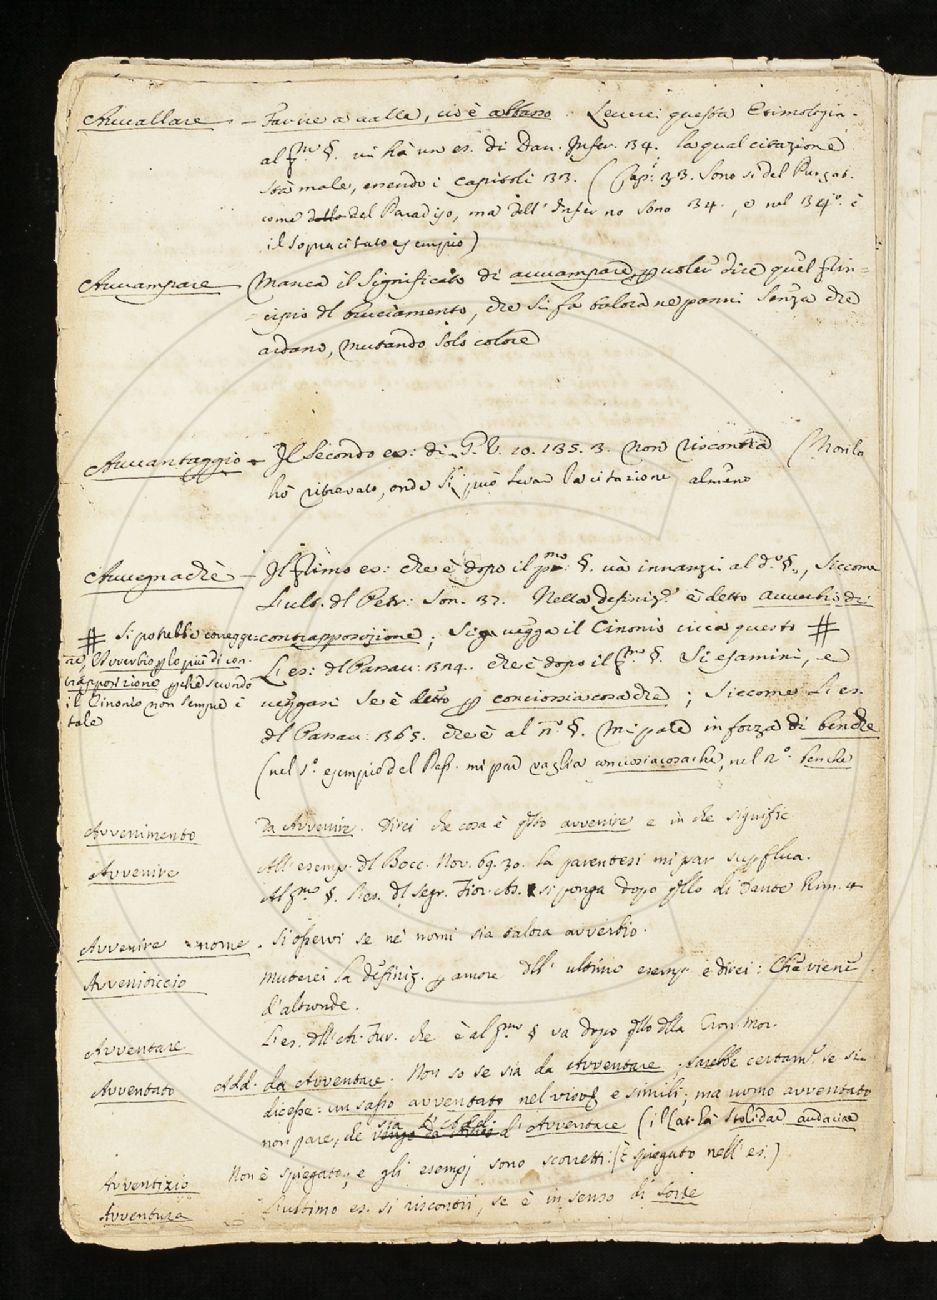 Avvallare - Farire a valle, cioè abbasso. Leverei questa Etimologia.
al p.mo §. vi hà un es. di Dan. Infer. 134. la qual citazione
stà male, essendo i capitoli 133. (Cap.i 33. sono sì del Purgat.
come dello del Paradiso, ma dell'Inferno sono 134., e nel 134.o è
il sopracitato esempio)
Avvampare - Manca il significato di avvampare p voler dire quel prin=
cipio del bruciamento, che si fa talora ne panni senza che
ardano, mutando solo colore
Avvantaggio - Il secondo es: di G. V. 10. 135. 3. non riscontra (Non lo
hò ritrovato, onde si può levar la citazione almeno
Avvegnachè - Il primo es: che è dopo il p.mo §. và innanzi al d.o §., siccome
L'ult. del Petr: Son. 37. Nella definiz.e è detto avverbio di
contrapposizione; Si vegga il Cinonio circa questo #
# Si potrebbe corregge
re, Avverbio p lo più di con-
trapposizione perchè secondo
il Cinonio non sempre è
tale
L'es: del Passav: 124. che è dopo il p.mo §. Si esamini, e
veggasi se è detto p conciossiacosachè; siccome L'es.
del Passav: 365. che è al n.o §. mi pare in forza di benchè
(nel 1.o esempio del Pass. mi par vaglia conciosiacosache, nel 2.o benche
Avvenimento Da Avvenire. Direi che cosa è qsto avvenire e in che signific
Avvenire All'esemp. del Bocc. Nov. 69. 30. la parentesi mi par supflua.
Al p.mo §. l'es. del Segr. Fior. As. si ponga dopo qllo di Dante Rim. 4
Avvenire nome. Si osservi se ne' nomi sia talora avverbio.
Avveniticcio Muterei la definiz. p amore dell'ultimo esemp e direi: Che viene
d'altronde.
Avventare L'es. dell'Ar. Fur. che è al p.mo § va dopo qllo dlla Cron. Mor.
Avventato Add. da Avventare. Non so se sia da Avventare, sarebbe certam.e se si
dicesse: un sasso avventato nel viso e simili; ma uomo avventato
non pare, che sia L'Add. d'Avventare (il Lat. hà stolidae audaciae
Avventizio Non è spiegato, e gli esempj sono scorretti. (È spiegato nell'es.)
Avventura L'ultimo es. si riscontri, se è in senso di sorte